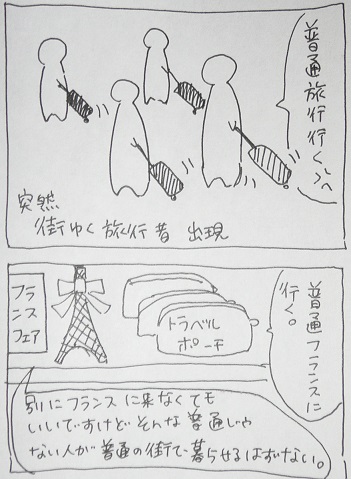 普通旅行行くべ
突然
街ゆく旅行者 出現
普通フランスに
行く。
フラ
ンス
フェア
トラベル
ポーチ
別にフランスに来なくても
いいですけどそんな普通じゃ
ない人が普通の街で暮らせるはずない。